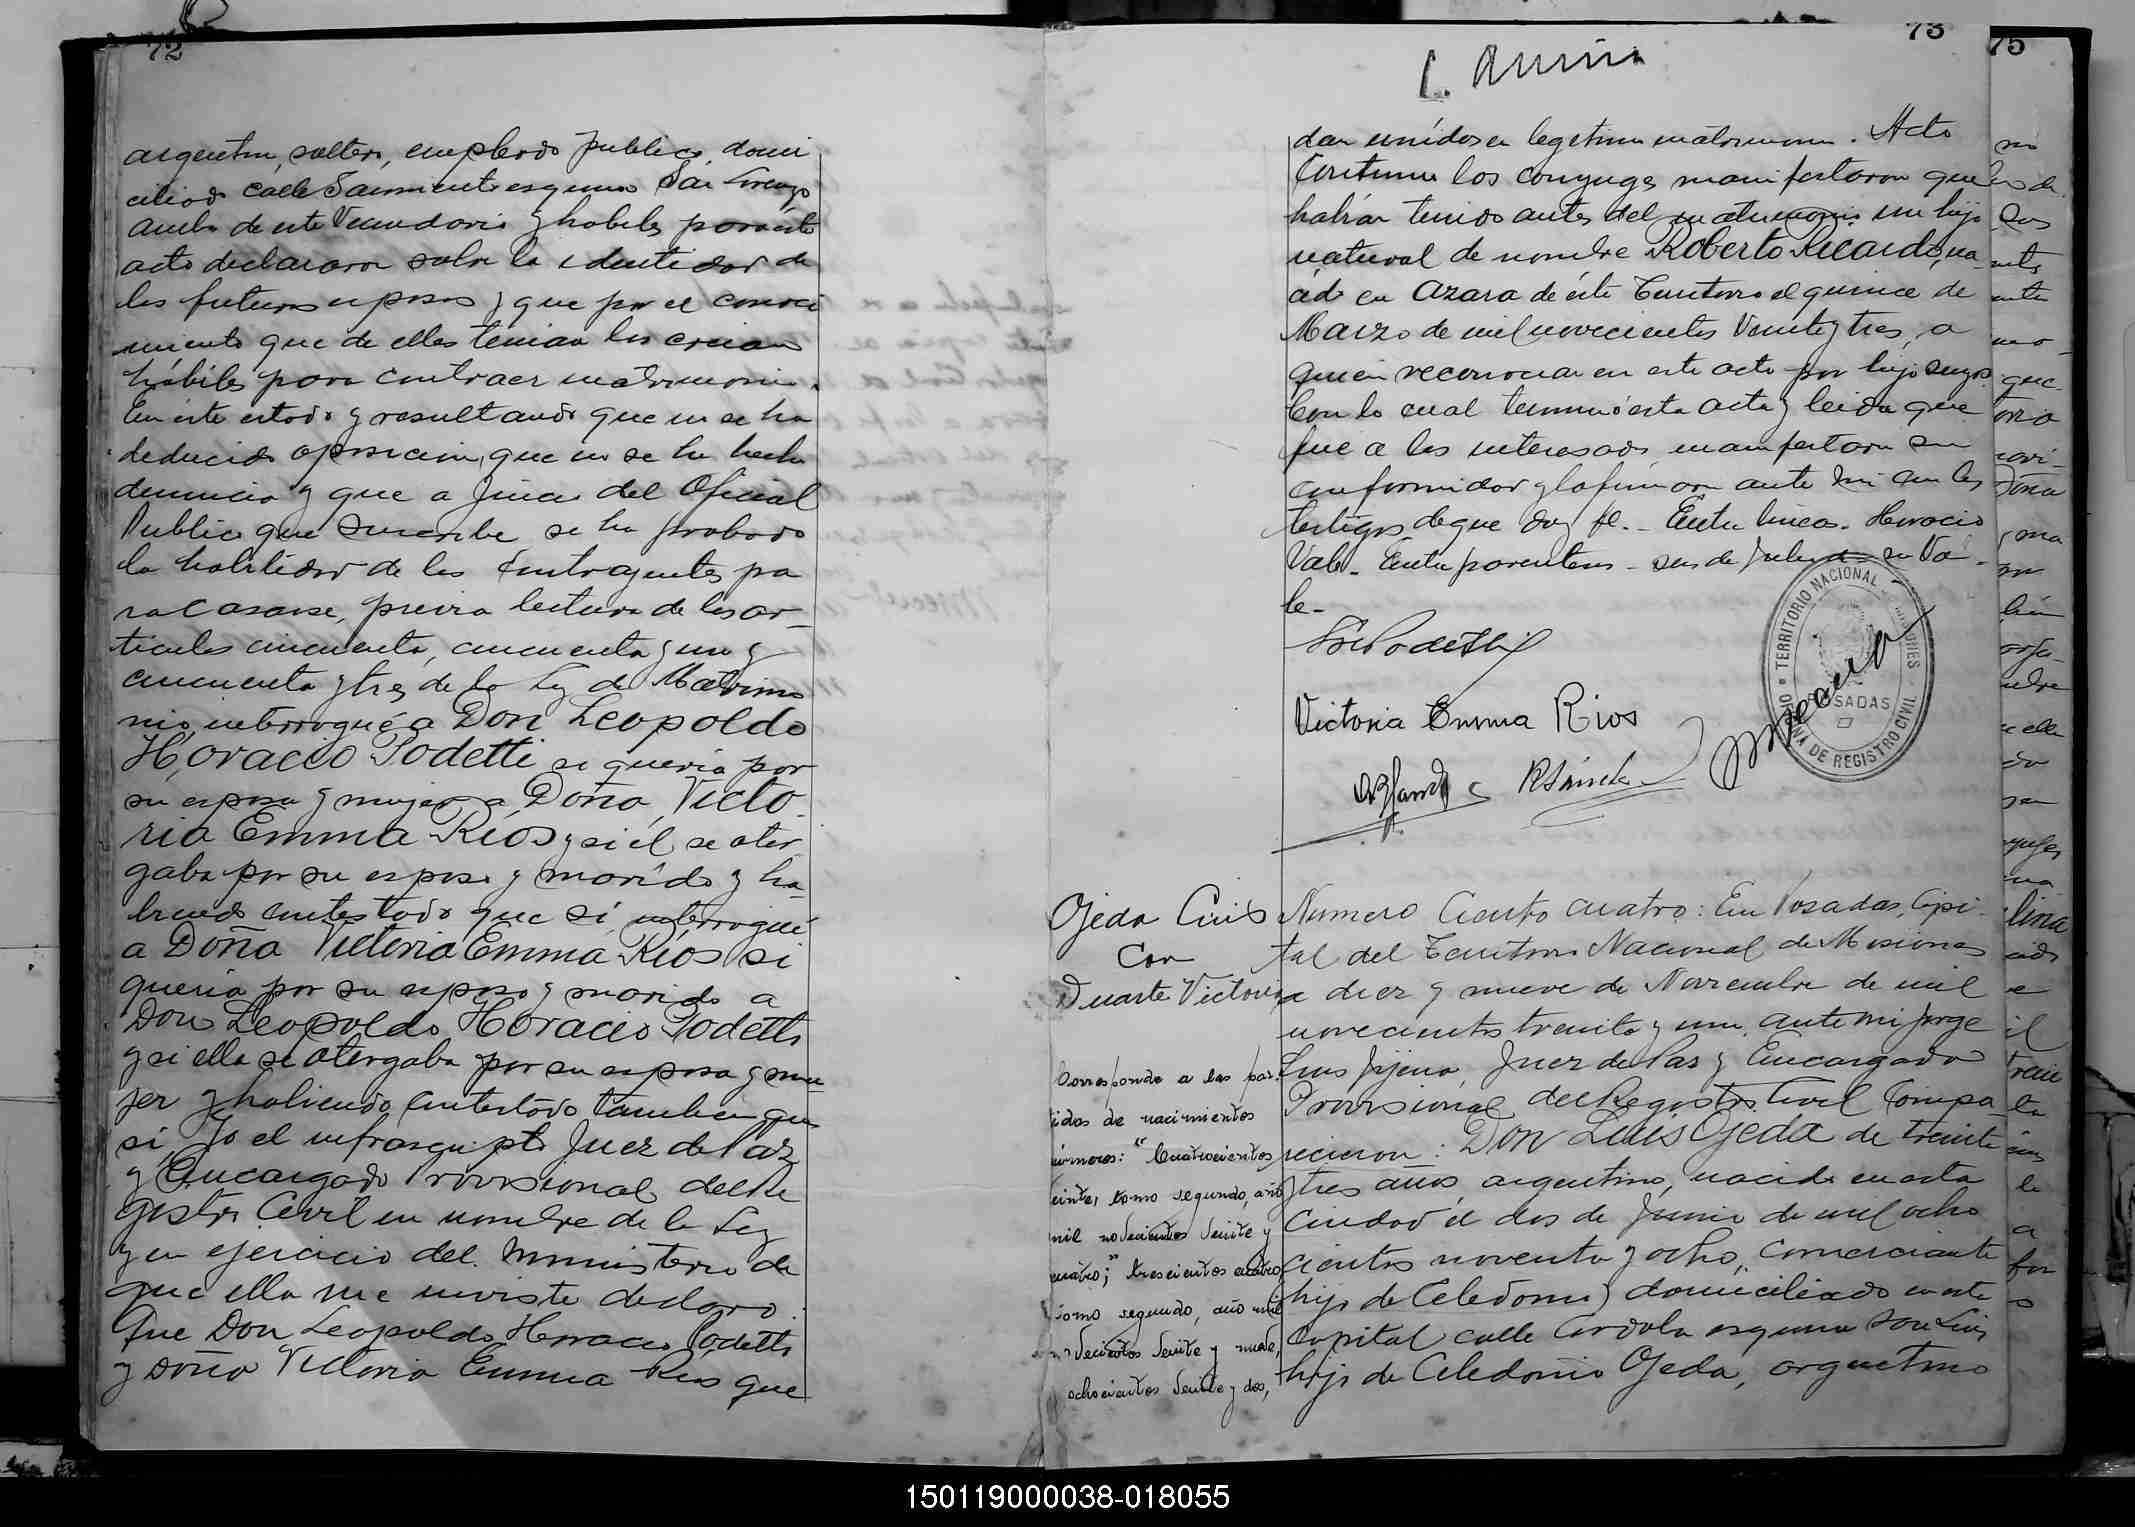 72
argentino, soltero, empleado publico, domi
ciliado calle Sarmiento esquina San Lorenzo
ambos de este Vecindario y habiles para este
acto declararon sobre la identidad de
los futuros esposos y que por el conoci
miento que de ellos tenian los creian
hábiles para contraer matrimonio.
En este estado y resultando que no se ha
deducido oposicion, que no se ha hecho
denuncia y que a juicio del Oficial
Publico que suscribe se ha probado
la habilidad de los contrayentes pa
ra casarse, previa lectura de los ar-
ticulos cincuenta, cincuenta y uno y
cincuenta y tres de la Ley de Matrimo
nio, interrogué a Don Leopoldo
Horacio Podetti si queria por
su esposa y mujer a Doña Victo-
ria Emma Rios y si él se otor
gaba por su esposo y marido y ha
biendo contestado que sí, interrogué
a Doña Victoria Emma Rios si
queria por su esposo y marido a
Don Leopoldo Horacio Podetti
y si ella se otorgaba por su esposa y mu
jer y habiendo contestado tambien que
si Yo el infrascripto Juez de Paz
y Encargado Provisional del Re
gistro Civil en nombre de la Ley
y en ejercicio del ministerio de
que ella me inviste declaro:
Que Don Leopoldo Horacio Podetti
y Doña Victoria Emma Rios que
73
dan unidos en legitimo matrimonio. Acto
continuo los conyuges manifestaron que
habian tenido antes del matrimonio un hijo
natural de nombre Roberto Ricardo, na
cido en Azara de éste Territorio el quince de
Marzo de mil novecientos Veinte y tres, a
quien reconocian en este acto por hijo suyo.
Con lo cual terminó esta acta y leida que
fue a los interesados, manifestaron su
conformidad y la firmaron ante mi con los
testigos de que doy fe.- Entre lineas- Horacio
Vale- Entre parentesis- se Va-
le-
Victoria Emma Rios
TERRITORIO NACIONAL DE MISIONES
POSADAS
OFICINA DE REGISTRO CIVIL
Ojeda Luis
Con
Duarte Victoria
Corresponde a las par-
tidas de nacimientos
números: "Cuatrocientos
veinte, tomo segundo, año
mil novecientos veinte y
cuatro;" trescientos cuatro
tomo segundo, año mil
novecientos veinte y nueve,
ochocientos veinte y dos,
Numero Ciento cuatro: En Posadas, Capi-
tal del Territorio Nacional de Misiones
a diez y nueve de Noviembre de mil
novecientos treinta y uno, ante mi Jorge
Luis Jijena, Juez de Paz y Encargado
Provisional del Registro Civil Compa-
recieron: Don Luis Ojeda de treinta
y tres años, argentino, nacido en esta
Ciudad el dos de Junio de mil ocho
cientos noventa y ocho, Comerciante
(hijo de Celedonio) domiciliado en esta
Capital calle Cordoba esquina San Luis
hijo de Celedonio Ojeda, argentino
75
150119000038-018055